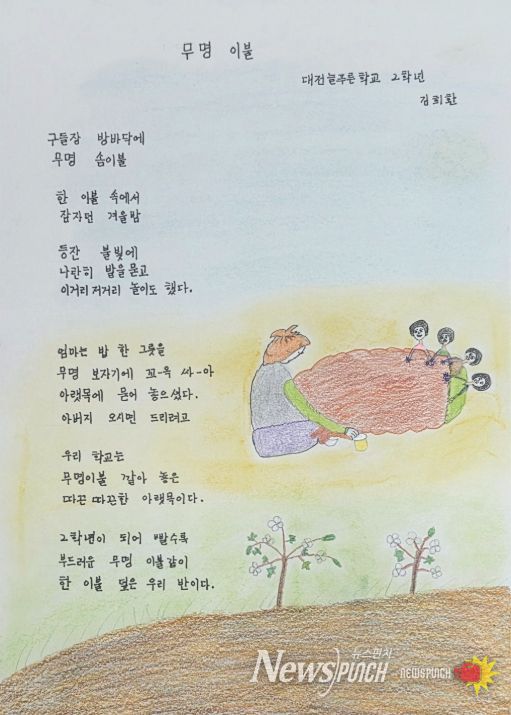 무명 이불
대전늘푸른학교 2학년
김희환
구들장 방바닥에
무명 솜이불
한 이불 속에서
잠자던 겨울밤
등잔 불빛에
나란히 발을 묻고
이거리저거리 놀이도 했다.
엄마는 밥 한 그릇을
무명 보자기에 꼬-옥 싸-아
아랫목에 묻어 놓으셨다.
아버지 오시면 드리려고
우리 학교는
무명이불 깔아 놓은
따끈따끈한 아랫목이다.
2학년이 되어 빨수록
부드러운 무명 이불같이
한 이불 덮은 우리 반이다.
뉴스펀치
NEWS PUNCH
NEWSPUNCH